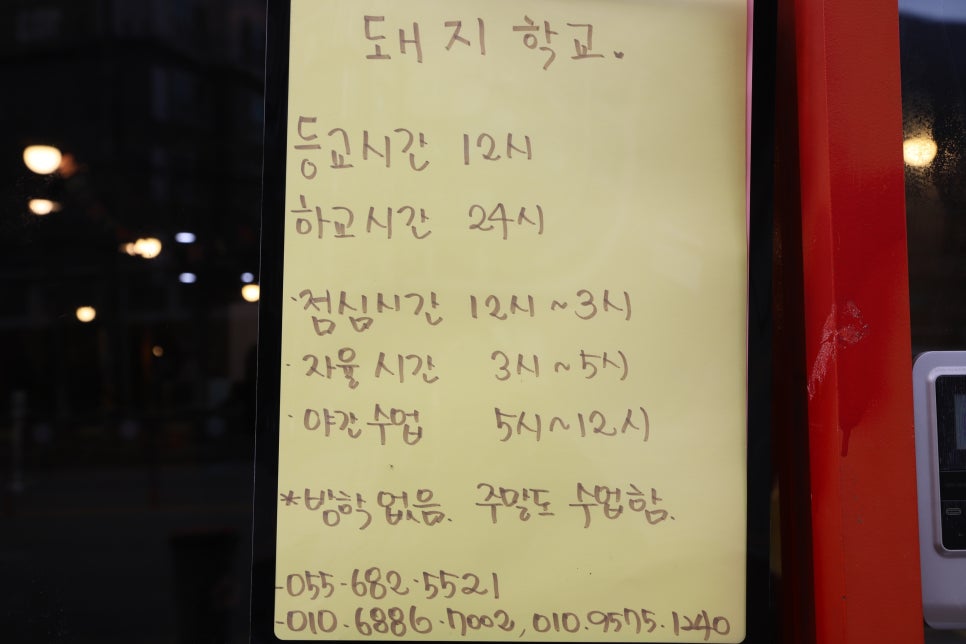 돼지학교.
등교시간 12시
하교시간 24시
·점심시간 12시~3시
·자율시간 3시~5시
·야간수업 5시~12시
*방학없음. 주말도 수업함.
-055-682-5521
-010.6886.7002, 010.9575.1240